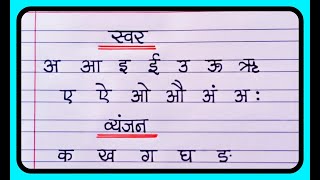 स्वर
अ आ इ ई उ ऊ ऋ
ए ऐ ओ औ अं अः
व्यंजन
क ख ग घ ङ